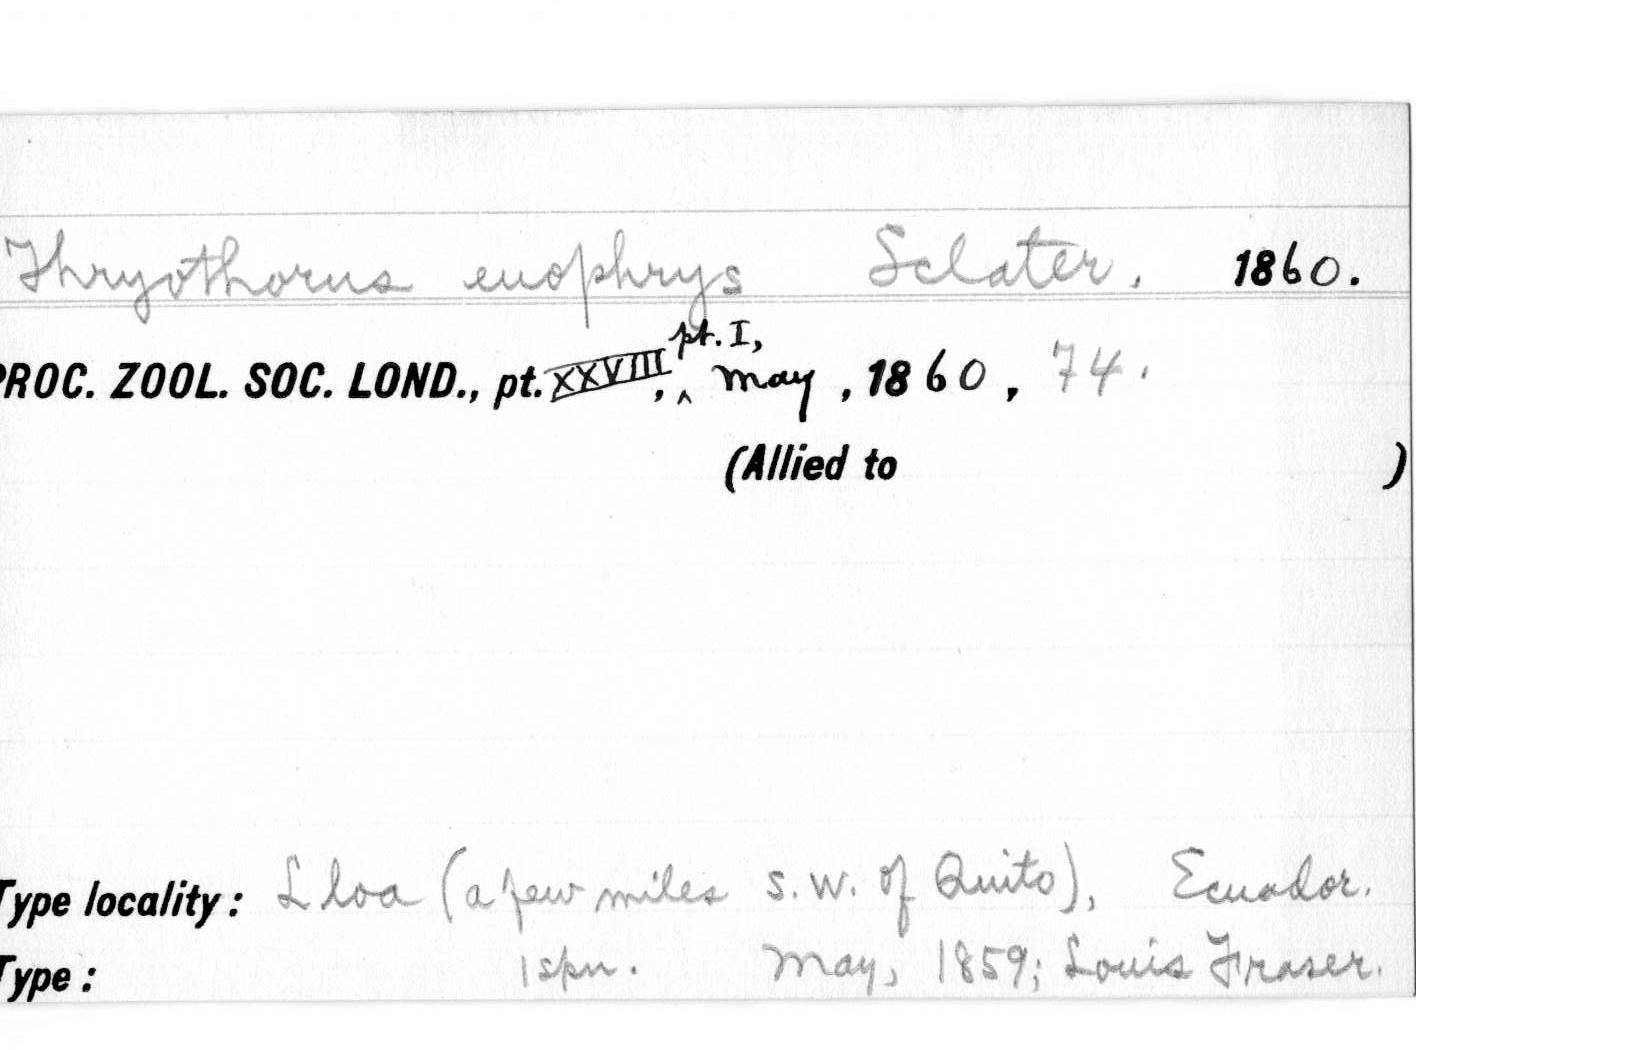 Thryothorus euophrys Sclater. 1860.
PROC. ZOOL. SOC. LOND., pt. XXVIII, pt. I, May, 1860, 74.
(Allied to )
Type locality: Lloa (a few miles S.W. of Quito), Ecuador.
Type: 1 spn. May, 1859; Louis Fraser.